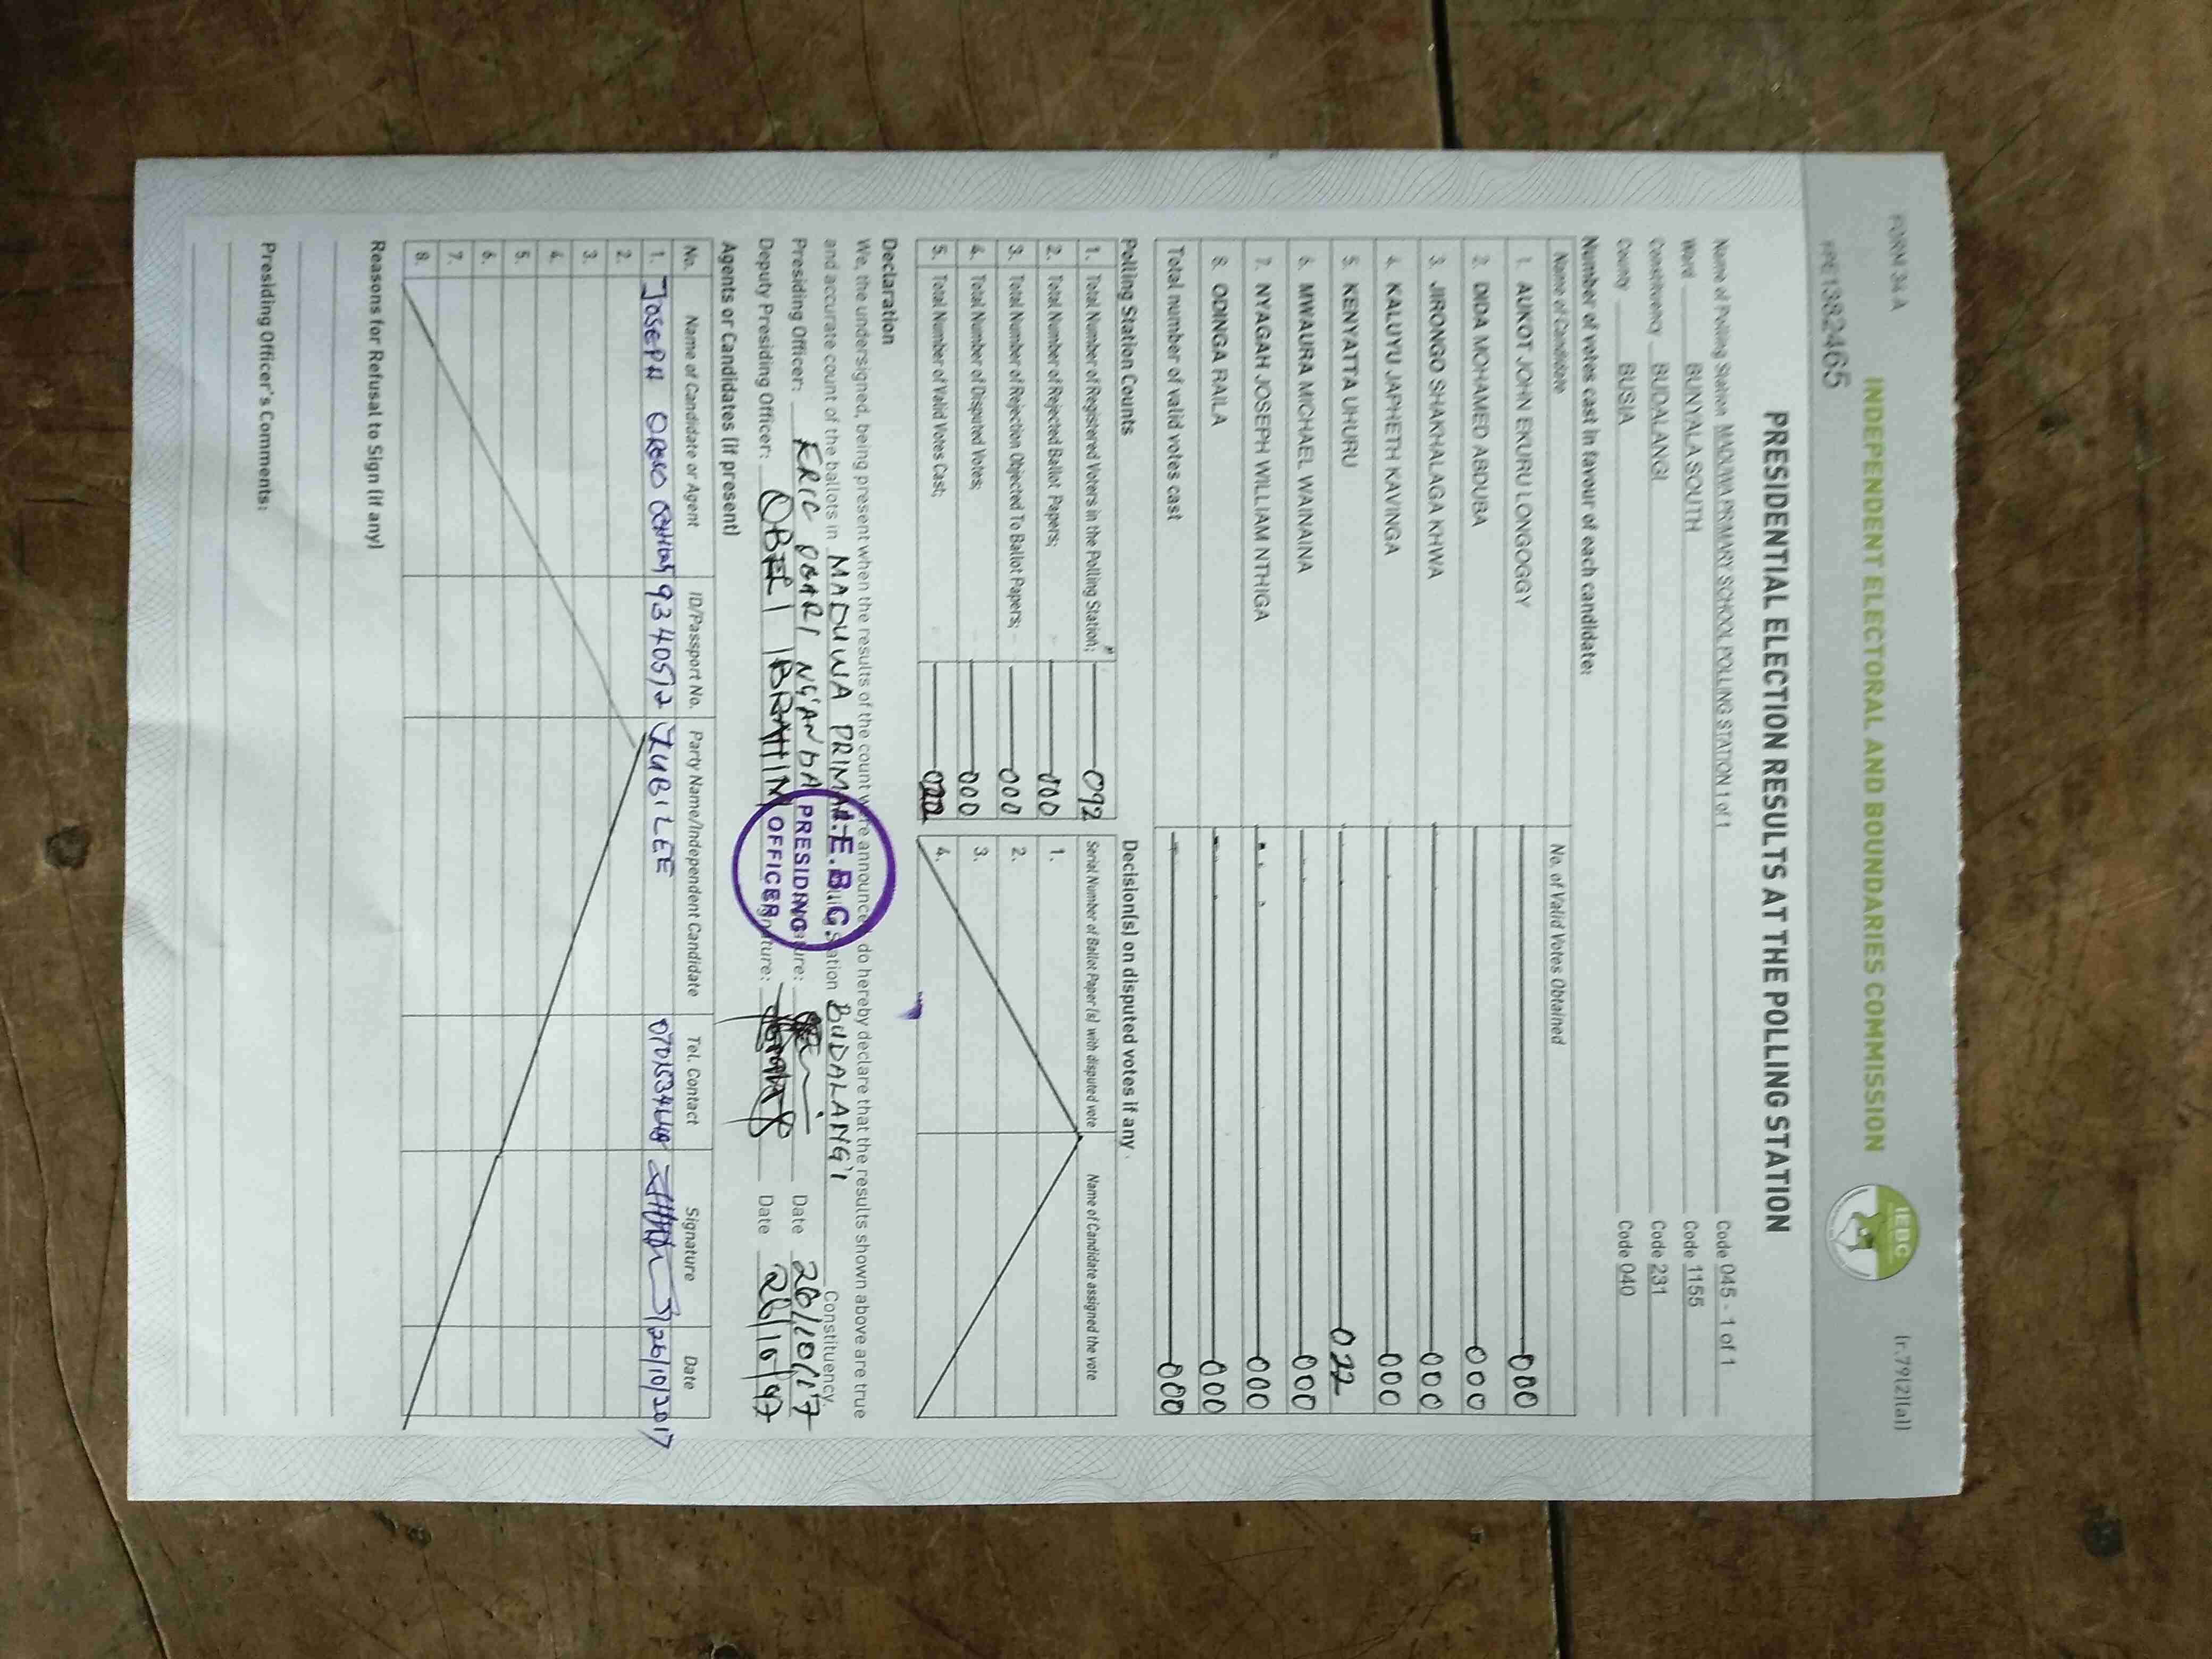 FORM 34 A
(r.79(2)(a))
INDEPENDENT ELECTORAL AND BOUNDARIES COMMISSION
IEBC
PRE1382465
PRESIDENTIAL ELECTION RESULTS AT THE POLLING STATION
Name of Polling Station MADUWA PRIMARY SCHOOL POLLING STATION 1 of 1 Code 045 - 1 of 1
Ward BUNYALA SOUTH Code 1155
Constituency BUDALANGI Code 231
County BUSIA Code 040
Number of votes cast in favour of each candidate:
Name of Candidate No. of Valid Votes Obtained
1. AUKOT JOHN EKURU LONGOGGY 000
2. DIDA MOHAMED ABDUBA 000
3. JIRONGO SHAKHALAGA KHWA 000
4. KALUYU JAPHETH KAVINGA 000
5. KENYATTA UHURU 022
6. MWAURA MICHAEL WAINAINA 000
7. NYAGAH JOSEPH WILLIAM NTHIGA 000
8. ODINGA RAILA 000
Total number of valid votes cast 000
Polling Station Counts
1. Total Number of Registered Voters in the Polling Station; 092
2. Total Number of Rejected Ballot Papers; 000
3. Total Number of Rejection Objected To Ballot Papers; 000
4. Total Number of Disputed Votes; 000
5. Total Number of Valid Votes Cast;
Decision(s) on disputed votes if any
Serial Number of Ballot Paper (s) with disputed vote Name of Candidate assigned the vote
1.
2.
3.
4.
Declaration
We, the undersigned, being present when the results of the count were announced do hereby declare that the results shown above are true
and accurate count of the ballots in MADUWA PRIMA Station BUDALANG'I Constituency.
Presiding Officer: ERIC NG'ANDA Date 26/10/17
Deputy Presiding Officer: OBEL IBRAHIM Signature: Date 26/10/17
I.E.B.C.
PRESIDING
OFFICER
Agents or Candidates (if present)
No. Name of Candidate or Agent ID/Passport No. Party Name/Independent Candidate Tel. Contact Signature Date
1. JOSEPH 93405912 JUBILEE 26/10/2017
2.
3.
4.
5.
6.
7.
8.
Reasons for Refusal to Sign (if any)
Presiding Officer's Comments: